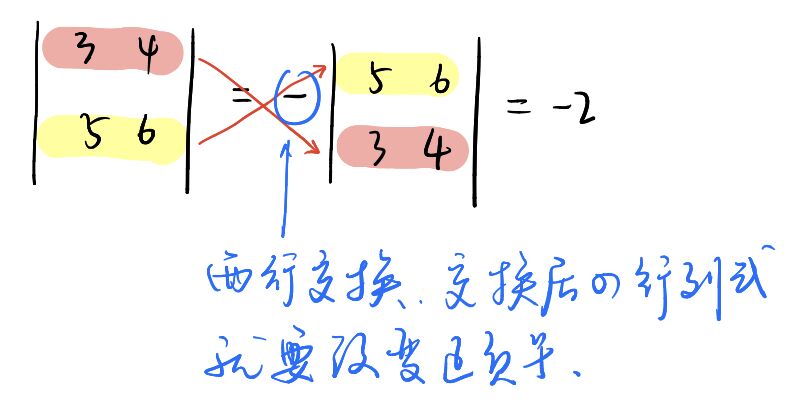 | 3 4 | = - | 5 6 | = -2
| 5 6 | | 3 4 |
两行交换、交换后の行列式
就要改变正负号、